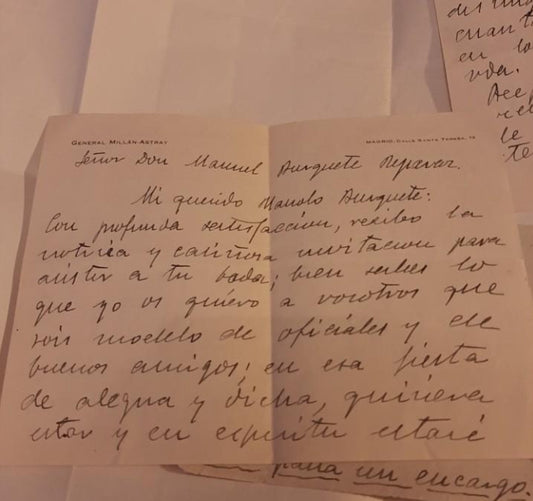 GENERAL MILLÁN-ASTRAY
MADRID, CALLE SANTA TERESA, 12
Señor Don Manuel
Mi querido Manolo
Con profunda satisfacción, recibo la
noticia y cariñosa invitacion para
asistir a tu boda; bien sabes lo
que yo os quiero a vosotros que
sois modelo de oficiales y de
buenos amigos; en esa fiesta
de alegria y dicha, quisiera
estar y en espiritu estaré
para un encargo.
cuan
en lo
vda.
le
te